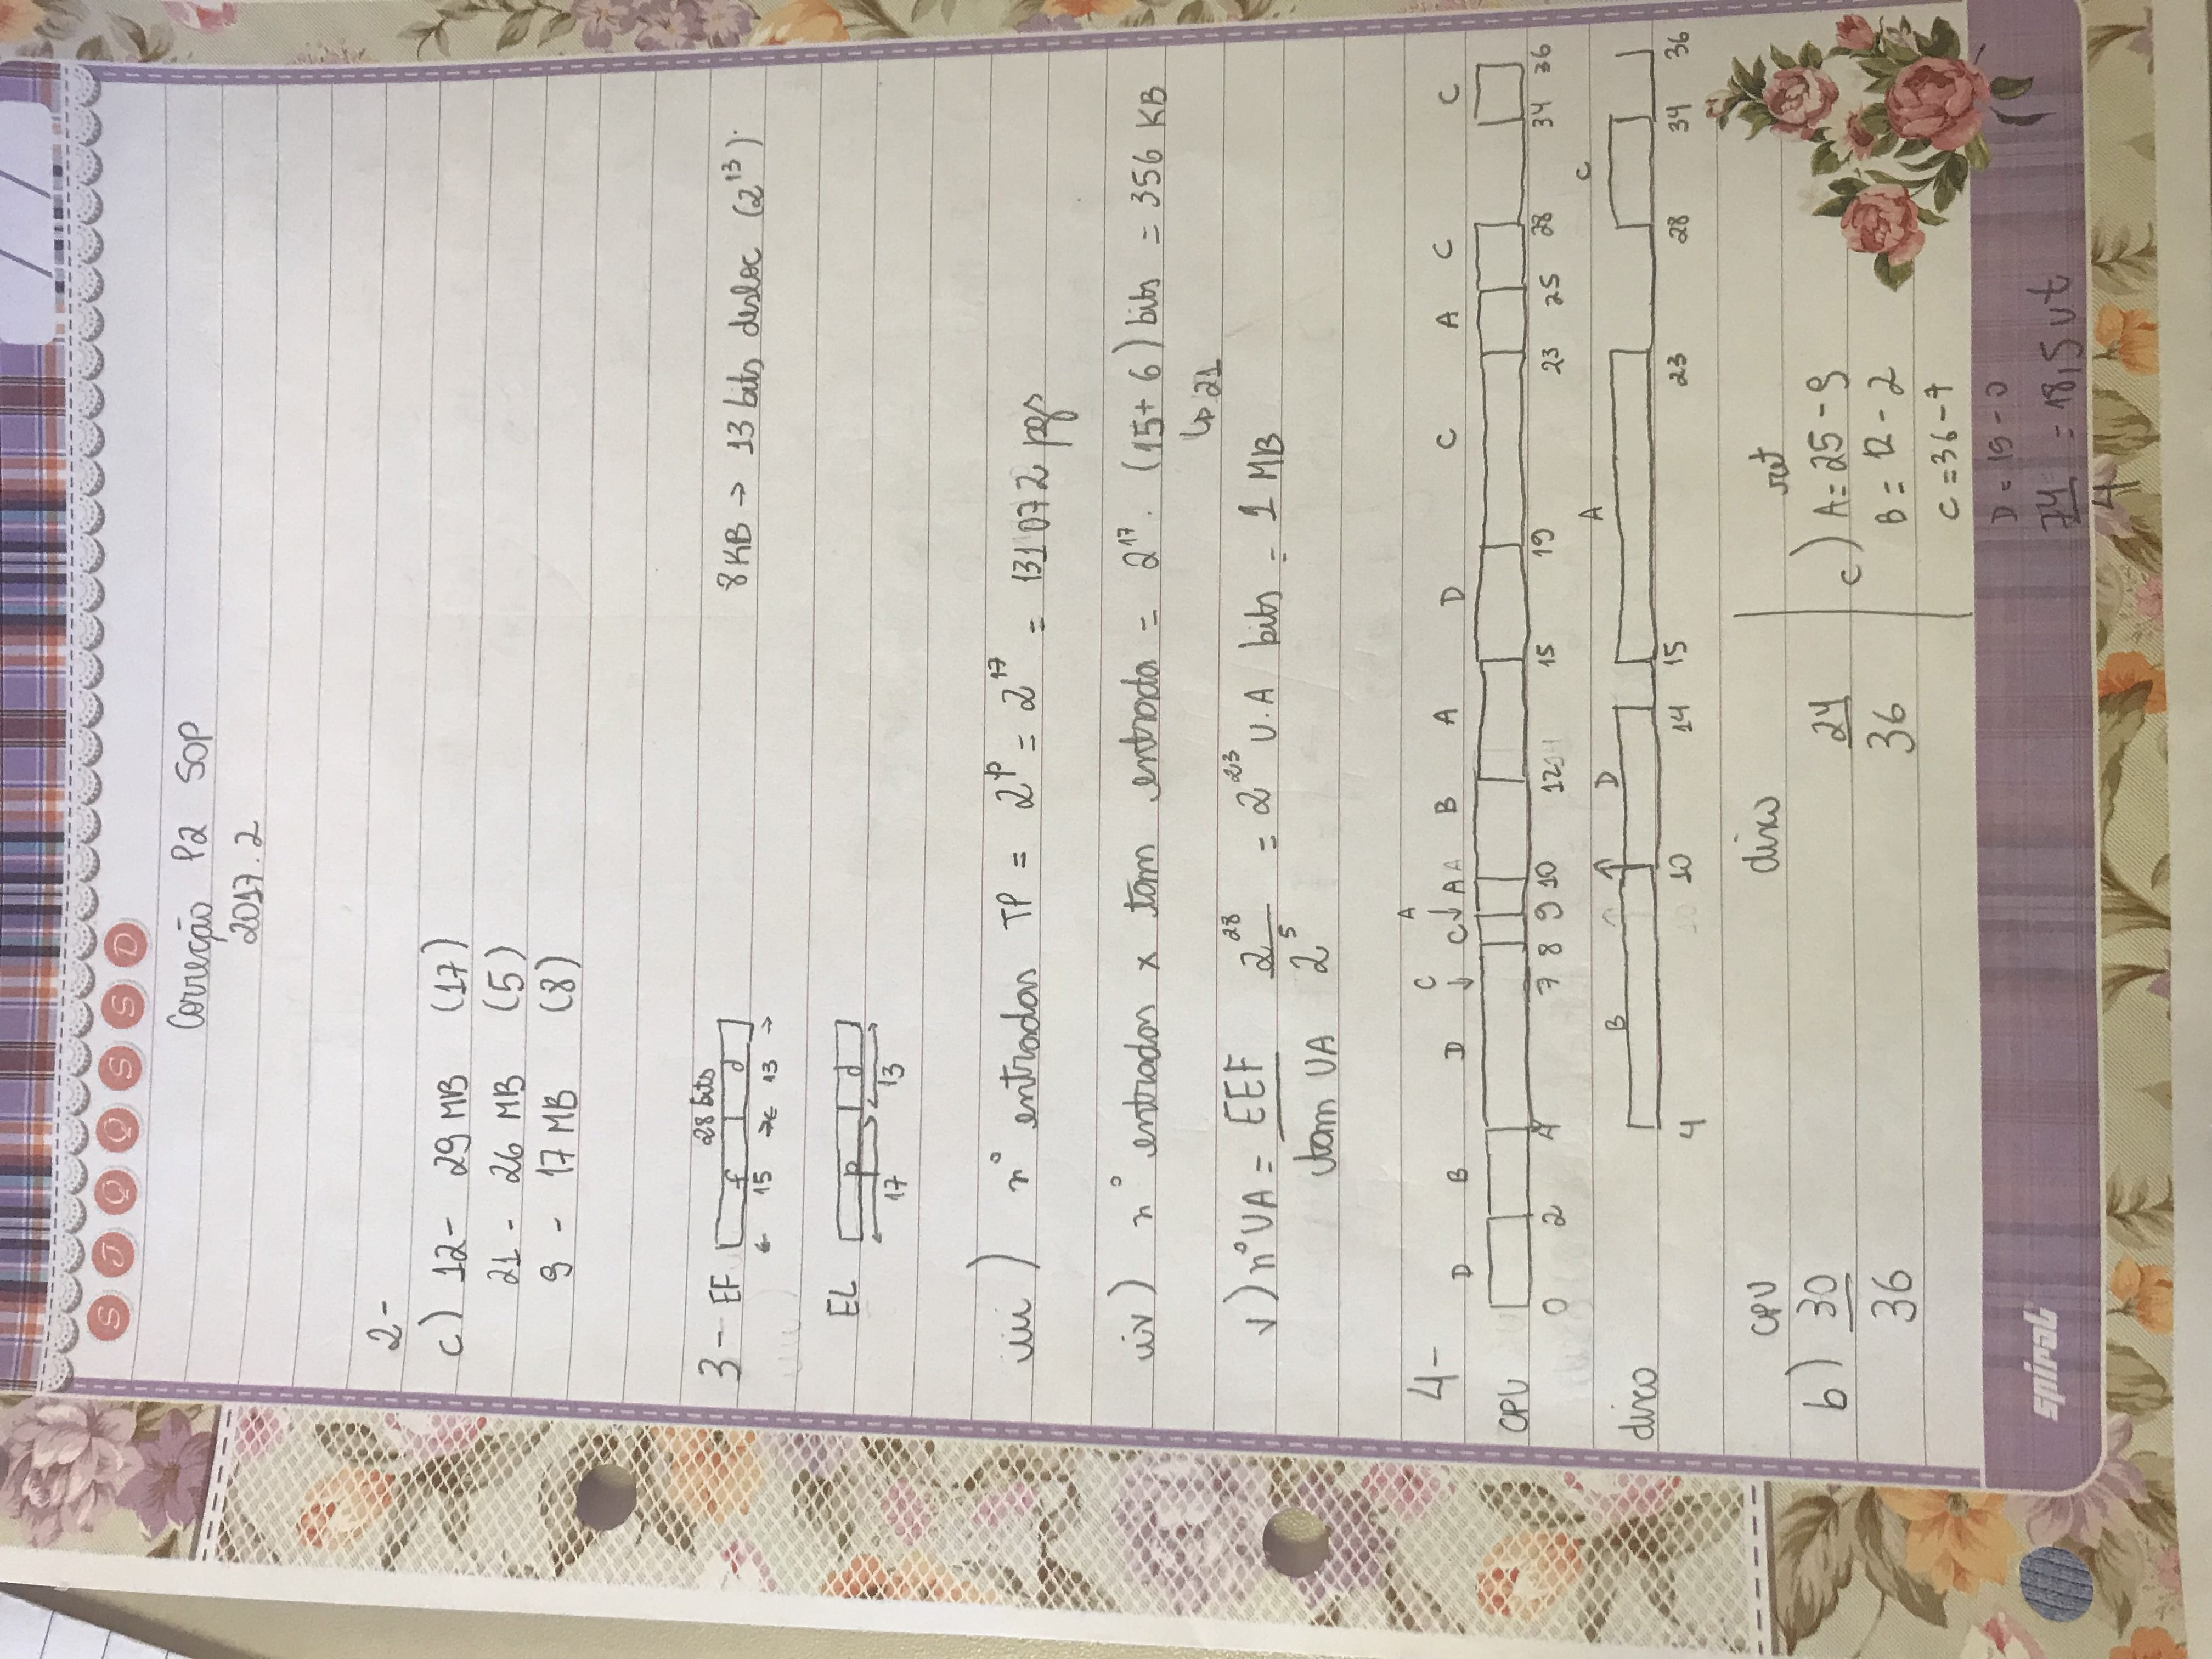 S T Q Q S S D
Correção P2 SOP
2017.2
2-
c) 12- 29 MB (17)
21 - 26 MB (5)
9 - 17 MB (8)
28 bits
3- EF f d
8KB → 13 bits desloc (2^13)
← 15 →← 13 →
EL p d
17 13
iii) n° entradas TP = 2^p = 2^17 = 131072 pgs
iv) n° entradas x tam entrada = 2^17 . (15+ 6) bits = 356 KB
↳ 21
v) n° UA = EEF 2^28 = 2^23 U.A bits = 1 MB
tam UA 2^5
4-
C A
D B D ↓ C ↓ A A B A D C A C C
CPU
0 2 4 7 8 9 10 12 14 15 19 23 25 28 34 36
B D A C
disco
4 10 10 14 15 23 28 34 36
CPU disco ret
b) 30 24 c) A= 25 - 9
36 36 B = 12 - 2
C = 36 - 7
D = 19 - 0
74 = 18,5 ut
4
spiral